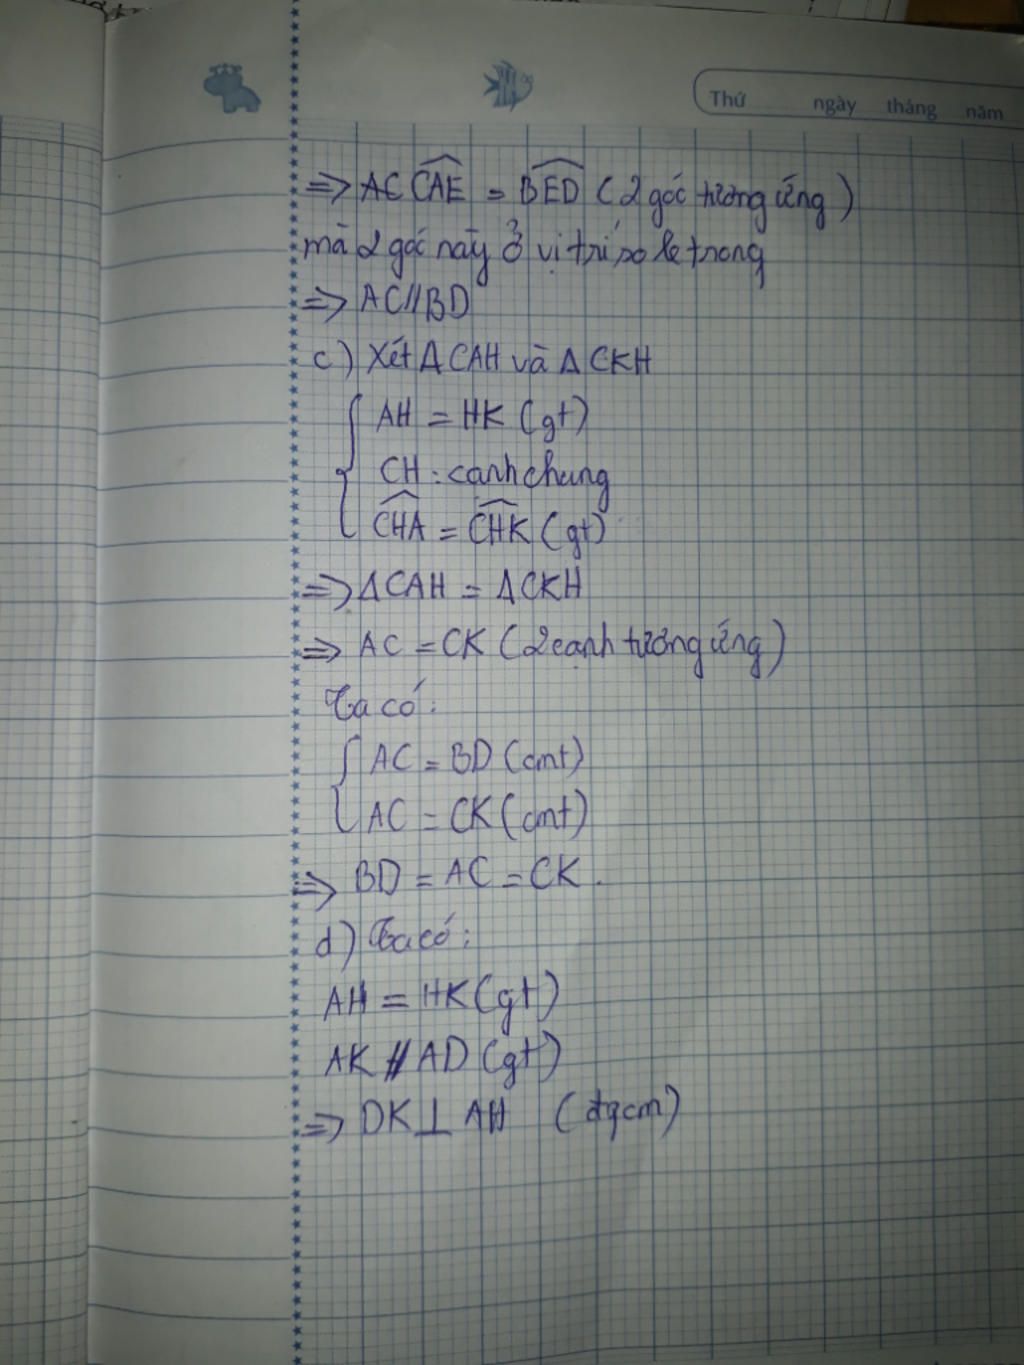 Thứ ngày tháng năm
=> AC CAE = BED (2 góc tương ứng)
mà 2 góc này ở vị trí so le trong
=> AC//BD
c) Xét ΔCAH và ΔCKH
AH = HK (gt)
CH: cạnh chung
CHA = CHK (gt)
=> ΔCAH = ΔCKH
=> AC = CK (2 cạnh tương ứng)
Ta có:
AC = BD (cmt)
AC = CK (cmt)
=> BD = AC = CK.
d) Ta có:
AH = HK (gt)
AK // AD (gt)
=> DK ⊥ AH (đqcm)